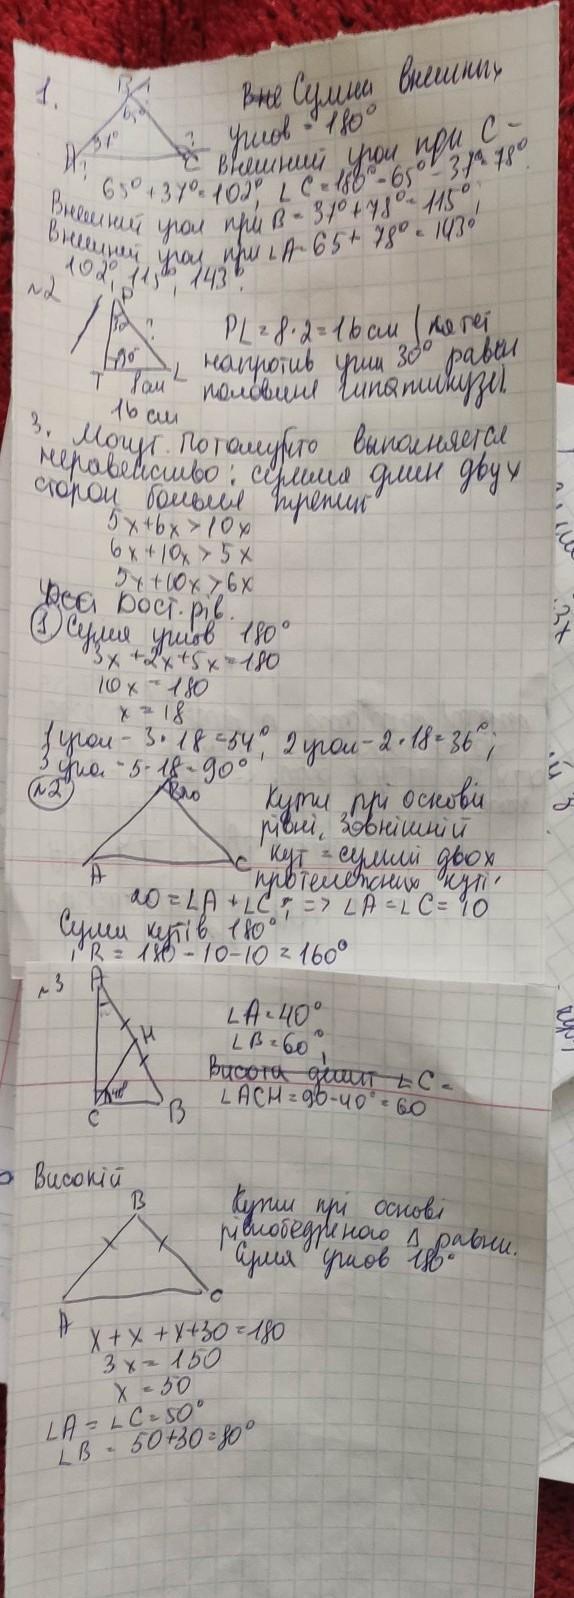 1.
B
65°
37°
A
?
?
C
Вне Сумма внешних
углов = 180°
Внешний угол при С -
65° + 37° = 102°, ∠C = 180° - 65° - 37° = 78°
Внешний угол при В = 37° + 78° = 115°,
Внешний угол при ∠А - 65 + 78° = 143°
102°, 115°, 143°.
№2
P
30
?
90°
T
8 см
L
PL = 8·2 = 16 см (катет
напротив угла 30° равен
половине гипотинузе).
16 см
3. Могут. Потомучто выполняется
неравенство: сумма длин двух
сторон больше третей
5x + 6x > 10x
6x + 10x > 5x
5x + 10x > 6x
Дост. рів.
1 Сумма углов 180°
3x + 2x + 5x = 180
10x = 180
x = 18
1 угол - 3·18 = 54°, 2 угол - 2·18 = 36°;
3 угол - 5·18 = 90°
№2
B
20
A
C
Кути прі основі
рівні, Зовнішній
кут = суммі двох
протележних кутів
20 = ∠A + ∠C; => ∠A = ∠C = 10
Сума кутів 180°
∠B = 180 - 10 - 10 = 160°
№3
A
H
C
40
B
∠A = 40°
∠B = 60°
Висота делит ∠C =
∠ACH = 90 - 40° = 60
Високій
B
A
C
Кути прі основі
рівнобедреного Δ равни.
Сумма углов 180°
x + x + x + 30 = 180
3x = 150
x = 50
∠A = ∠C = 50°
∠B = 50 + 30 = 80°